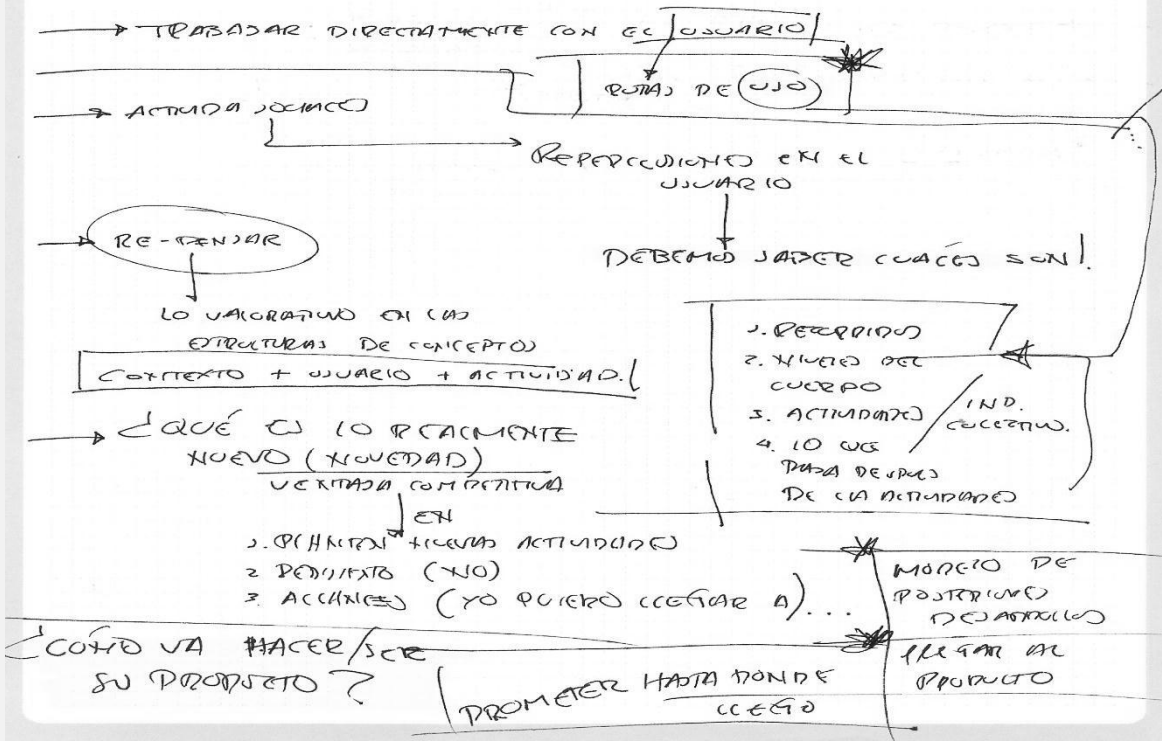 → TRABAJAR DIRECTAMENTE CON EL USUARIO
RUTAS DE USO
→ ACTIVIDA SOCIALES
REPERCUSIONES EN EL
USUARIO
→ RE-PENSAR
DEBEMOS SABER CUALES SON!
LO VALORATIVO EN LAS
ESTRUCTURAS DE CONCEPTOS
CONTEXTO + USUARIO + ACTIVIDAD.
1. RECORRIDOS
2. NIVELES DEL
CUERPO
3. ACTIVIDADES
4. LO QUE
PASA DESPUES
DE LA ACTIVIDADES
IND.
COLECTIVO.
→ ¿QUÉ ES LO REALMENTE
NUEVO (NOVEDAD)
VENTAJA COMPETITIVA
EN
1. PLANTEAN NUEVAS ACTIVIDADES
2 (NO)
3. ALCANCES (YO QUIERO LLEGAR A)...
MODELO DE
POSTERIORES
DESARROLLOS
¿CÓMO VA HACER/SER
SU PRODUCTO?
PROMETER HASTA DONDE
LLEGO
LLEGAR AL
PRODUCTO